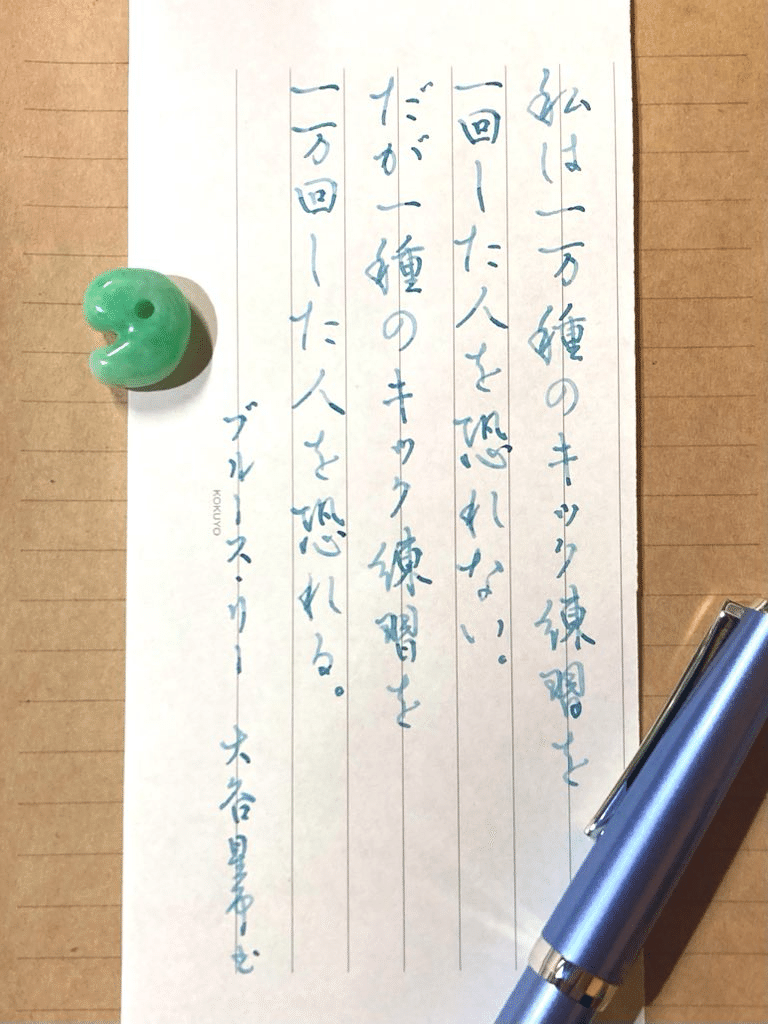 私は一万種のキック練習を
一回した人を恐れない。
だが一種のキック練習を
一万回した人を恐れる。
ブルース・リー 大谷
KOKUYO